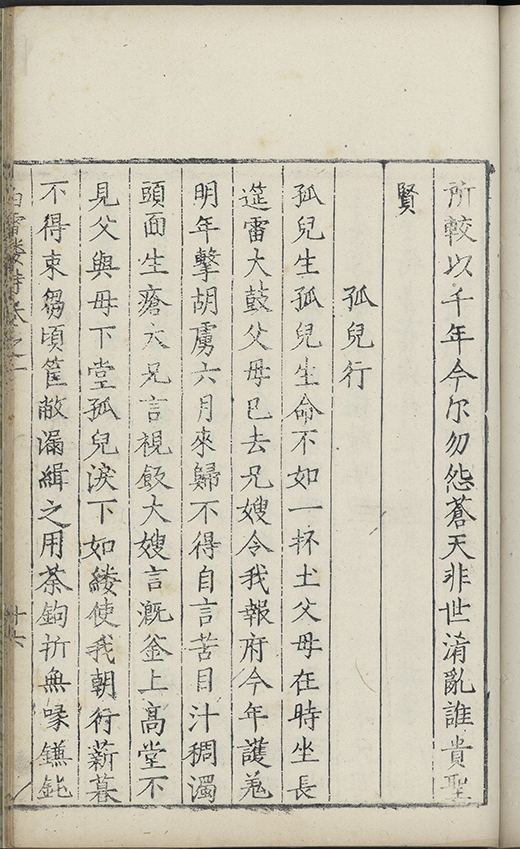 所較以千年今尔勿怨蒼天非世淆亂誰貴聖
賢
孤兒行
孤兒生孤兒生命不如一抔土父母在時坐長
筵雷大鼓父母已去兄嫂令我報府今年護羗
明年擊胡虜六月來歸不得自言苦目汁稠濁
頭面生瘡大兄言視飯大嫂言漑釜上髙堂不
見父與母下堂孤兒淚下如綆使我朝行薪暮
不得束芻頃筐敝漏緝之用荼鉤折無喙鐮鈍
白雪樓詩卷之二
十六